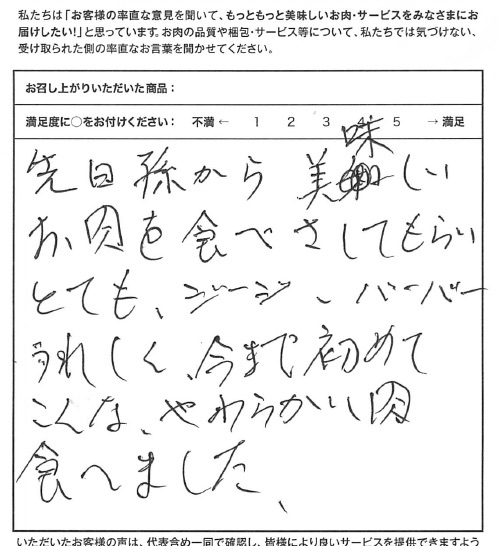 私たちは「お客様の率直な意見を聞いて、もっともっと美味しいお肉・サービスをみなさまにお
届けしたい!」と思っています。お肉の品質や梱包・サービス等について、私たちでは気づけない、
受け取られた側の率直なお言葉を聞かせてください。
お召し上がりいただいた商品：
満足度に○をお付けください： 不満 ← 1 2 3 4 5 → 満足
先日孫から 美味しい
お肉を食べさしてもらい
とても、ジージ、バーバー
うれしく、今まで初めて
こんな、やわらかいい肉
食べました、
いただいたお客様の声は、代表含め一同で確認し、皆様により良いサービスを提供できますよう